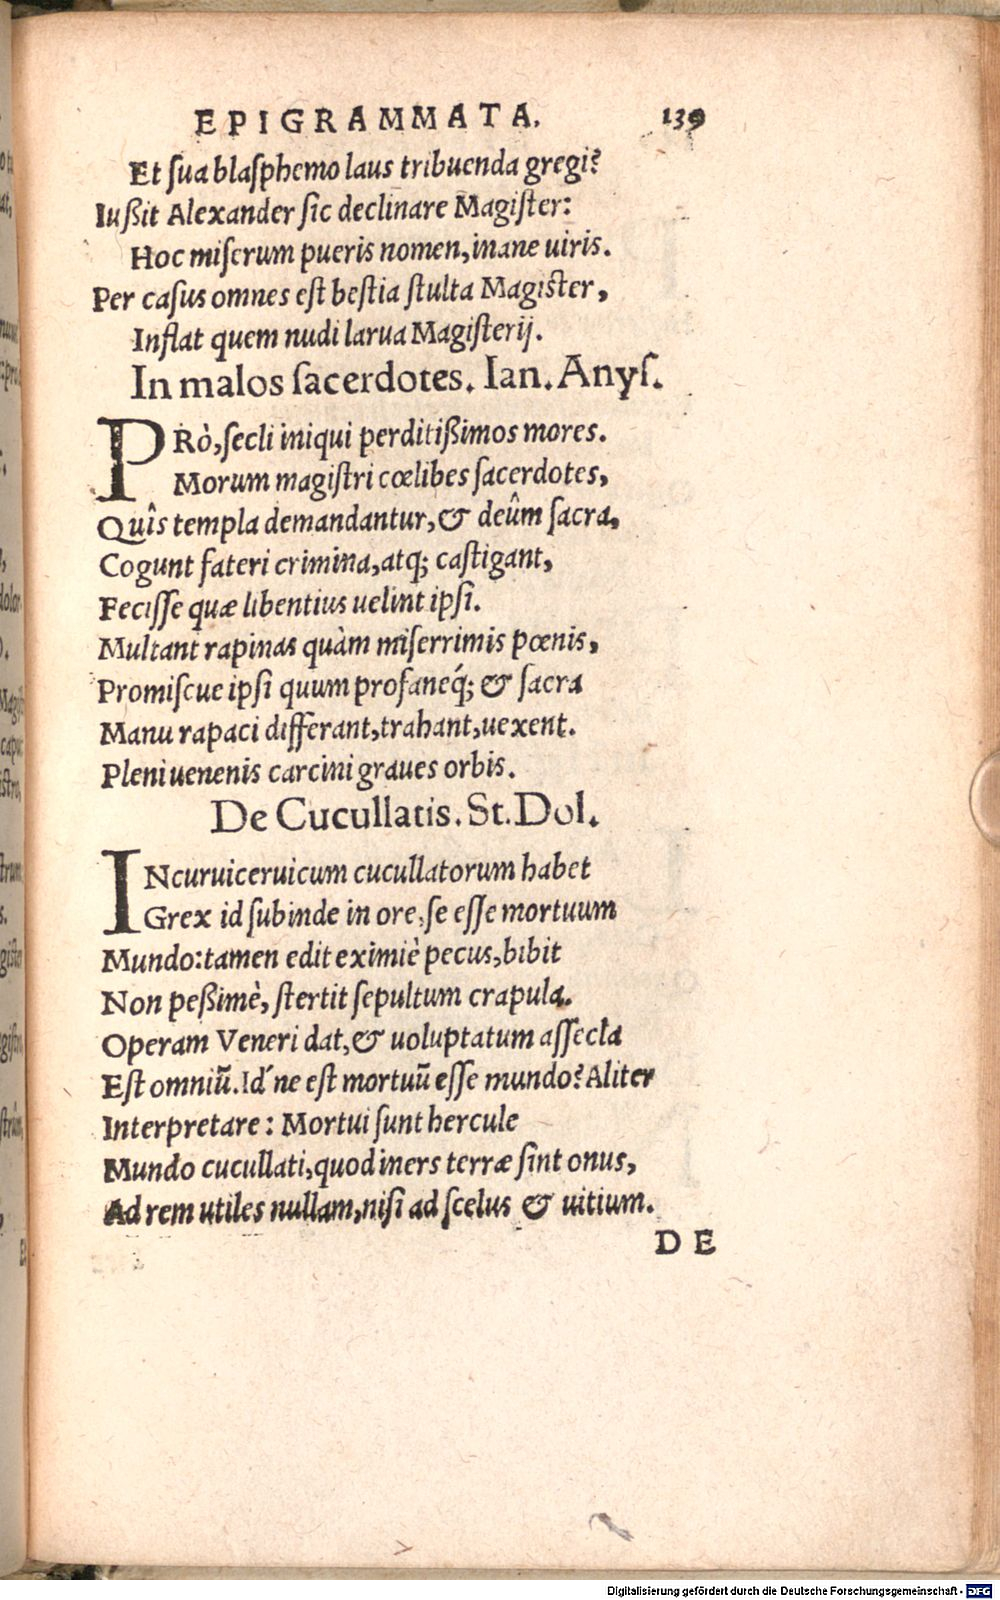 EPIGRAMMATA. 139
Et ſua blaſphemo laus tribuenda gregi?
Iußit Alexander ſic declinare Magiſter:
Hoc miſerum pueris nomen, inane uiris.
Per caſus omnes eſt beſtia ſtulta Magiſter,
Inflat quem nudi larua Magiſterij.
In malos ſacerdotes. Ian. Anyſ.
PRò, ſecli iniqui perditißimos mores.
Morum magiſtri cœlibes ſacerdotes,
Quîs templa demandantur, & deûm ſacra,
Cogunt fateri crimina, atq; caſtigant,
Feciſſe quæ libentius uelint ipſi.
Multant rapinas quàm miſerrimis pœnis,
Promiſcue ipſi quum profaneq́; & ſacra
Manu rapaci differant, trahant, uexent.
Pleni uenenis carcini graues orbis.
De Cucullatis. St. Dol.
INcuruiceruicum cucullatorum habet
Grex id ſubinde in ore, ſe eſſe mortuum
Mundo: tamen edit eximiè pecus, bibit
Non peßimè, ſtertit ſepultum crapula.
Operam Veneri dat, & uoluptatum aſſecla
Eſt omniū. Id´ne eſt mortuū eſſe mundo? Aliter
Interpretare: Mortui ſunt hercule
Mundo cucullati, quod iners terræ ſint onus,
Ad rem utiles nullam, niſi ad ſcelus & uitium.
DE
Digitalisierung gefördert durch die Deutsche Forschungsgemeinschaft - DFG